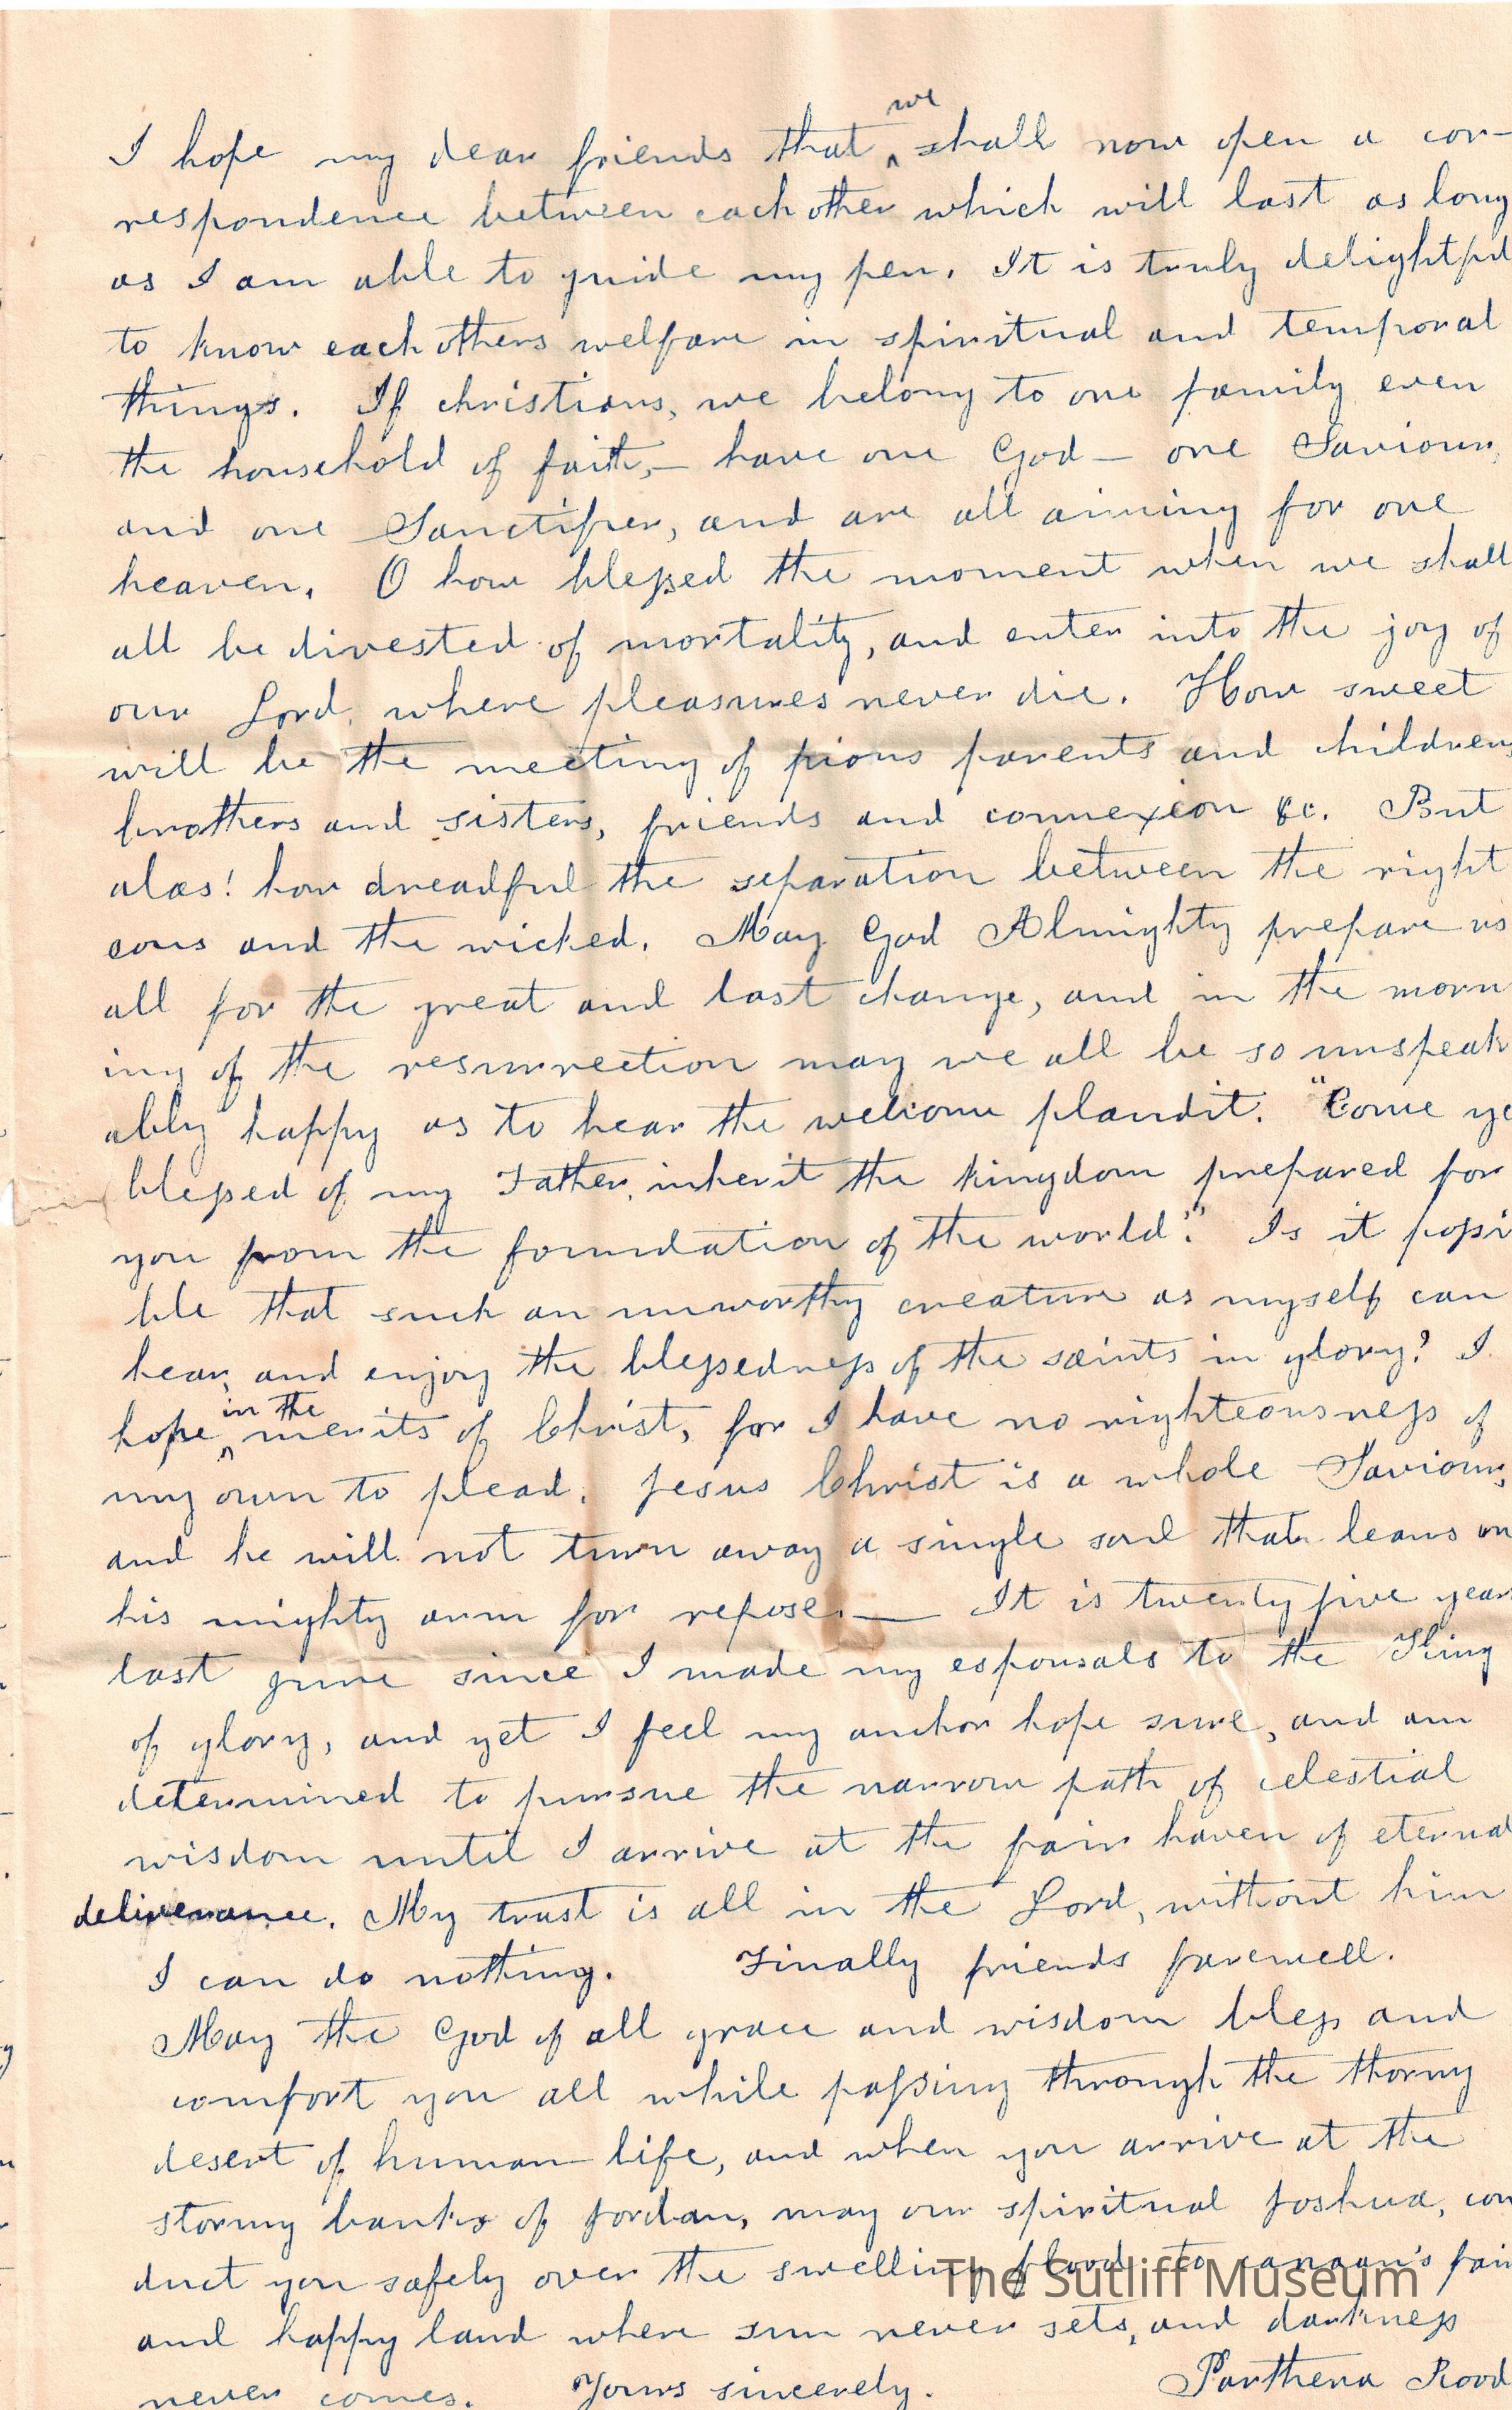 I hope my dear friends that ^we shall now open a cor-
respondence between each other which will last as long
as I am able to guide my pen. It is truly delightful
to know each others welfare in spiritual and temporal
things. If christians, we belong to one family even
the household of faith,— have one God— one Saviour,
and one Sanctifier, and are all aiming for one
heaven. O how blessed the moment when we shall
all be divested of mortality, and enter into the joy of
our Lord, where pleasures never die. How sweet
will be the meeting of pious parents and children,
brothers and sisters, friends and connexion &c. But
alas! how dreadful the separation between the right
eous and the wicked. May God Almighty prepare us
all for the great and last change, and in the morn
ing of the resurrection may we all be so unspeak
ably happy as to hear the welcome plaudit. "Come ye
blessed of my Father, inherit the kingdom prepared for
you from the foundation of the world." Is it possi
ble that such an unworthy creature as myself can
hear, and enjoy the blessedness of the saints in glory? I
hope ^in the merits of Christ, for I have no righteousness of
my own to plead. Jesus Christ is a whole Saviour,
and he will not turn away a single soul that leans on
his mighty arm for repose.— It is twenty five years
last june since I made my espousals to the King
of glory, and yet I feel my anchor hope sure, and am
determined to pursue the narrow path of celestial
wisdom until I arrive at the fair haven of eternal
deliverance. My trust is all in the Lord, without him
I can do nothing. Finally friends farewell.
May the God of all grace and wisdom bless and
comfort you all while passing through the thorny
desert of human life, and when you arrive at the
stormy banks of Jordan, may our spiritual Joshua, con
duct you safely over the swelling flood to canaan's fair
The Sutliff Museum
and happy land where sun never sets, and darkness
never comes. Yours sincerely. Parthena Rood